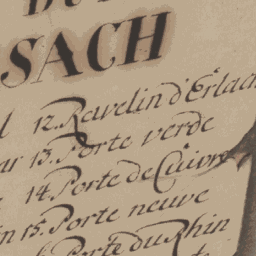 SACH
12. Revelin d'Erlach
13. Porte verde
14. Porte de Cuivre
15. Porte neuve
Porte du Rhin